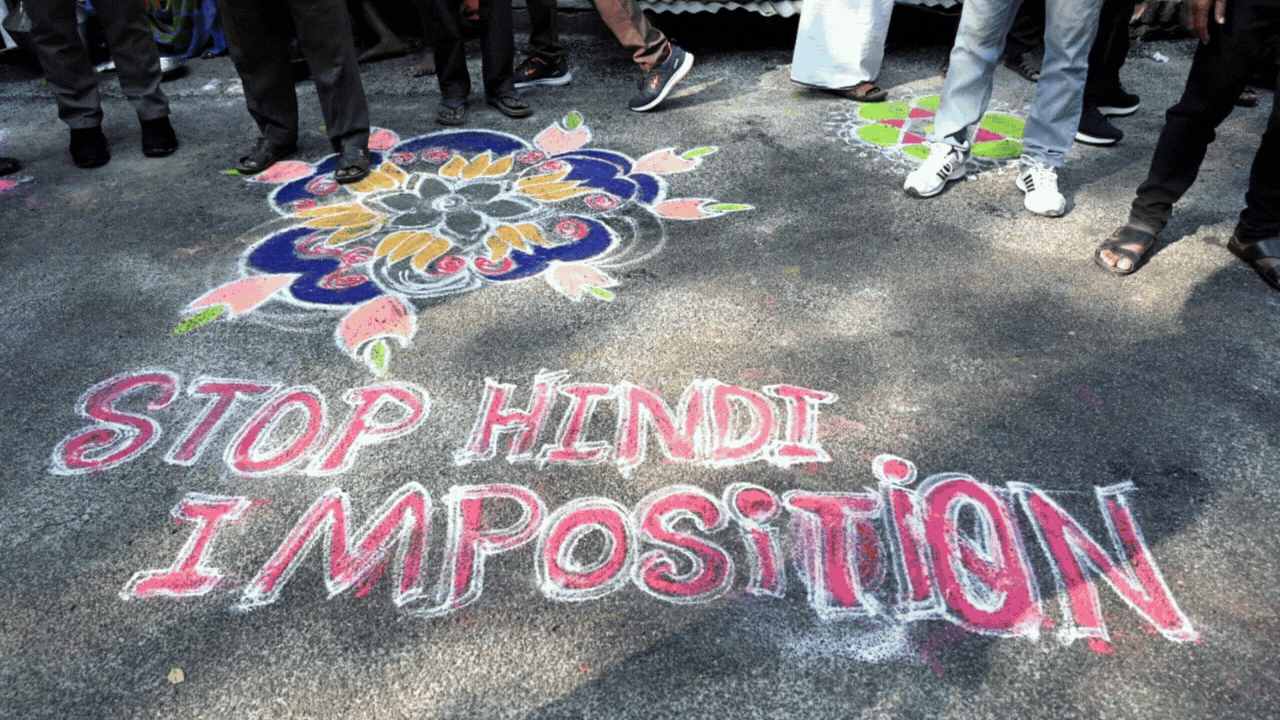 STOP HINDI
IMPOSiTiON